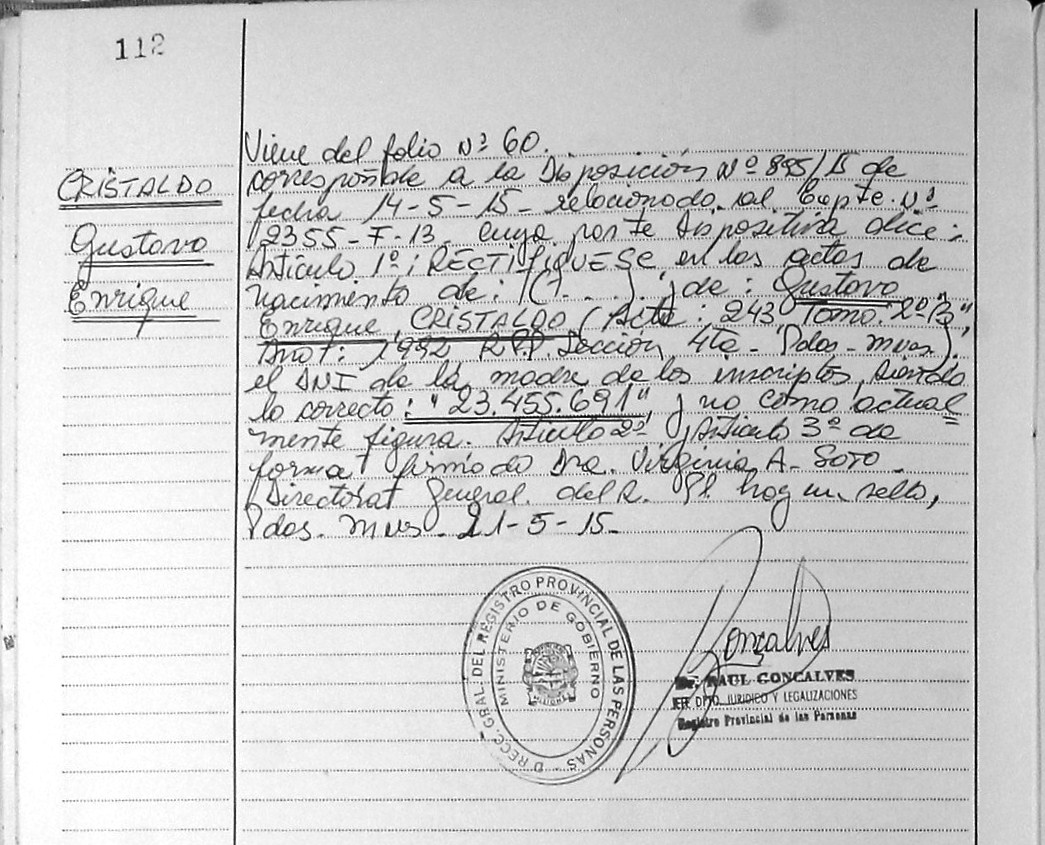 112
CRISTALDO
Gustavo
Enrique
Viene del folio Nº 60.
corresponde a la Disposición Nº 895/15 de
fecha 14-5-15- relacionado al Expte. Nº
2355-F-13 cuya parte dispositiva dice:
Artículo 1º: RECTIFIQUESE en las actas de
nacimiento de: (1......) y de: Gustavo
Enrique CRISTALDO (Acta: 243 Tomo: 2º "B"
Año: 1992 R.P.P. Sección 4ta - Pdas - Mnes).
el DNI de la madre de los inscriptos, siendo
lo correcto: "23.455.691" y no como actual
mente figura. Artículo 2º y Artículo 3º de
forma firmado Dra. Virginia A. SOTO -
Directora General del R.P.P. hay un sello,
Pdas. Mnes 21-5-15-
DIRECC. GRAL. DEL REGISTRO PROVINCIAL DE LAS PERSONAS
MINISTERIO DE GOBIERNO
MISIONES
Goncalves
Dr. RAUL GONCALVES
JEF. DPTO. JURIDICO Y LEGALIZACIONES
Registro Provincial de las Personas